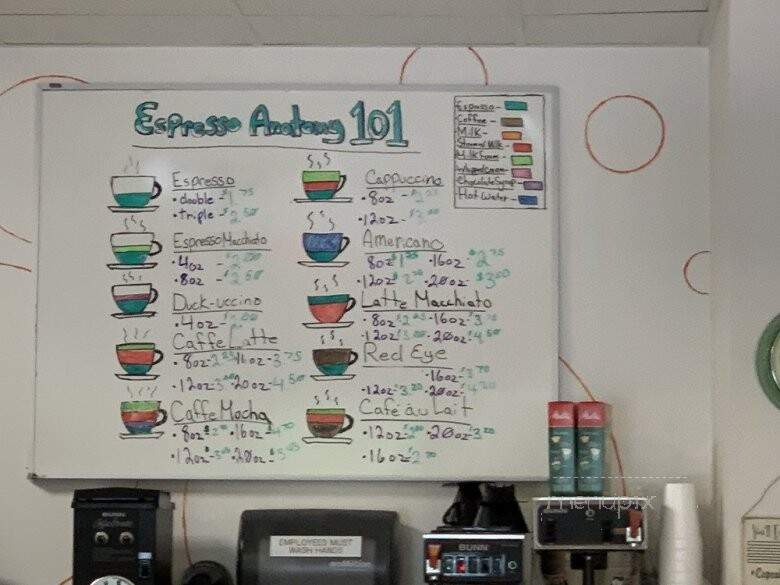 Espresso Anatomy 101
Espresso -
Coffee -
Milk -
Steamed Milk -
Milk Foam -
Whipped Cream -
Chocolate Syrup -
Hot Water -
Espresso
• double - $1.75
• triple - $2.50
Espresso Macchiato
• 4oz - $2.00
• 8oz - $2.50
Duck-uccino
• 4oz -
Caffe Latte
• 8oz - 2.25 • 16oz - 3.75
• 12oz - 3.00 • 20oz - 4.50
Caffe Mocha
• 8oz • 16oz -
• 12oz • 20oz -
Cappuccino
• 8oz -
• 12oz - $3.00
Americano
8oz $1.75 • 16oz - $2.75
• 12oz • 20oz - $3.50
Latte Macchiato
• 8oz - $2.25 • 16oz - $3.75
• 12oz - $3.00 • 20oz - $4.50
Red Eye
• 16oz -
• 12oz - 3.20 • 20oz -
Café au Lait
• 12oz - • 20oz -
• 16oz -
Melitta
Melitta
menupix
BUNN
EMPLOYEES MUST
WASH HANDS
BUNN